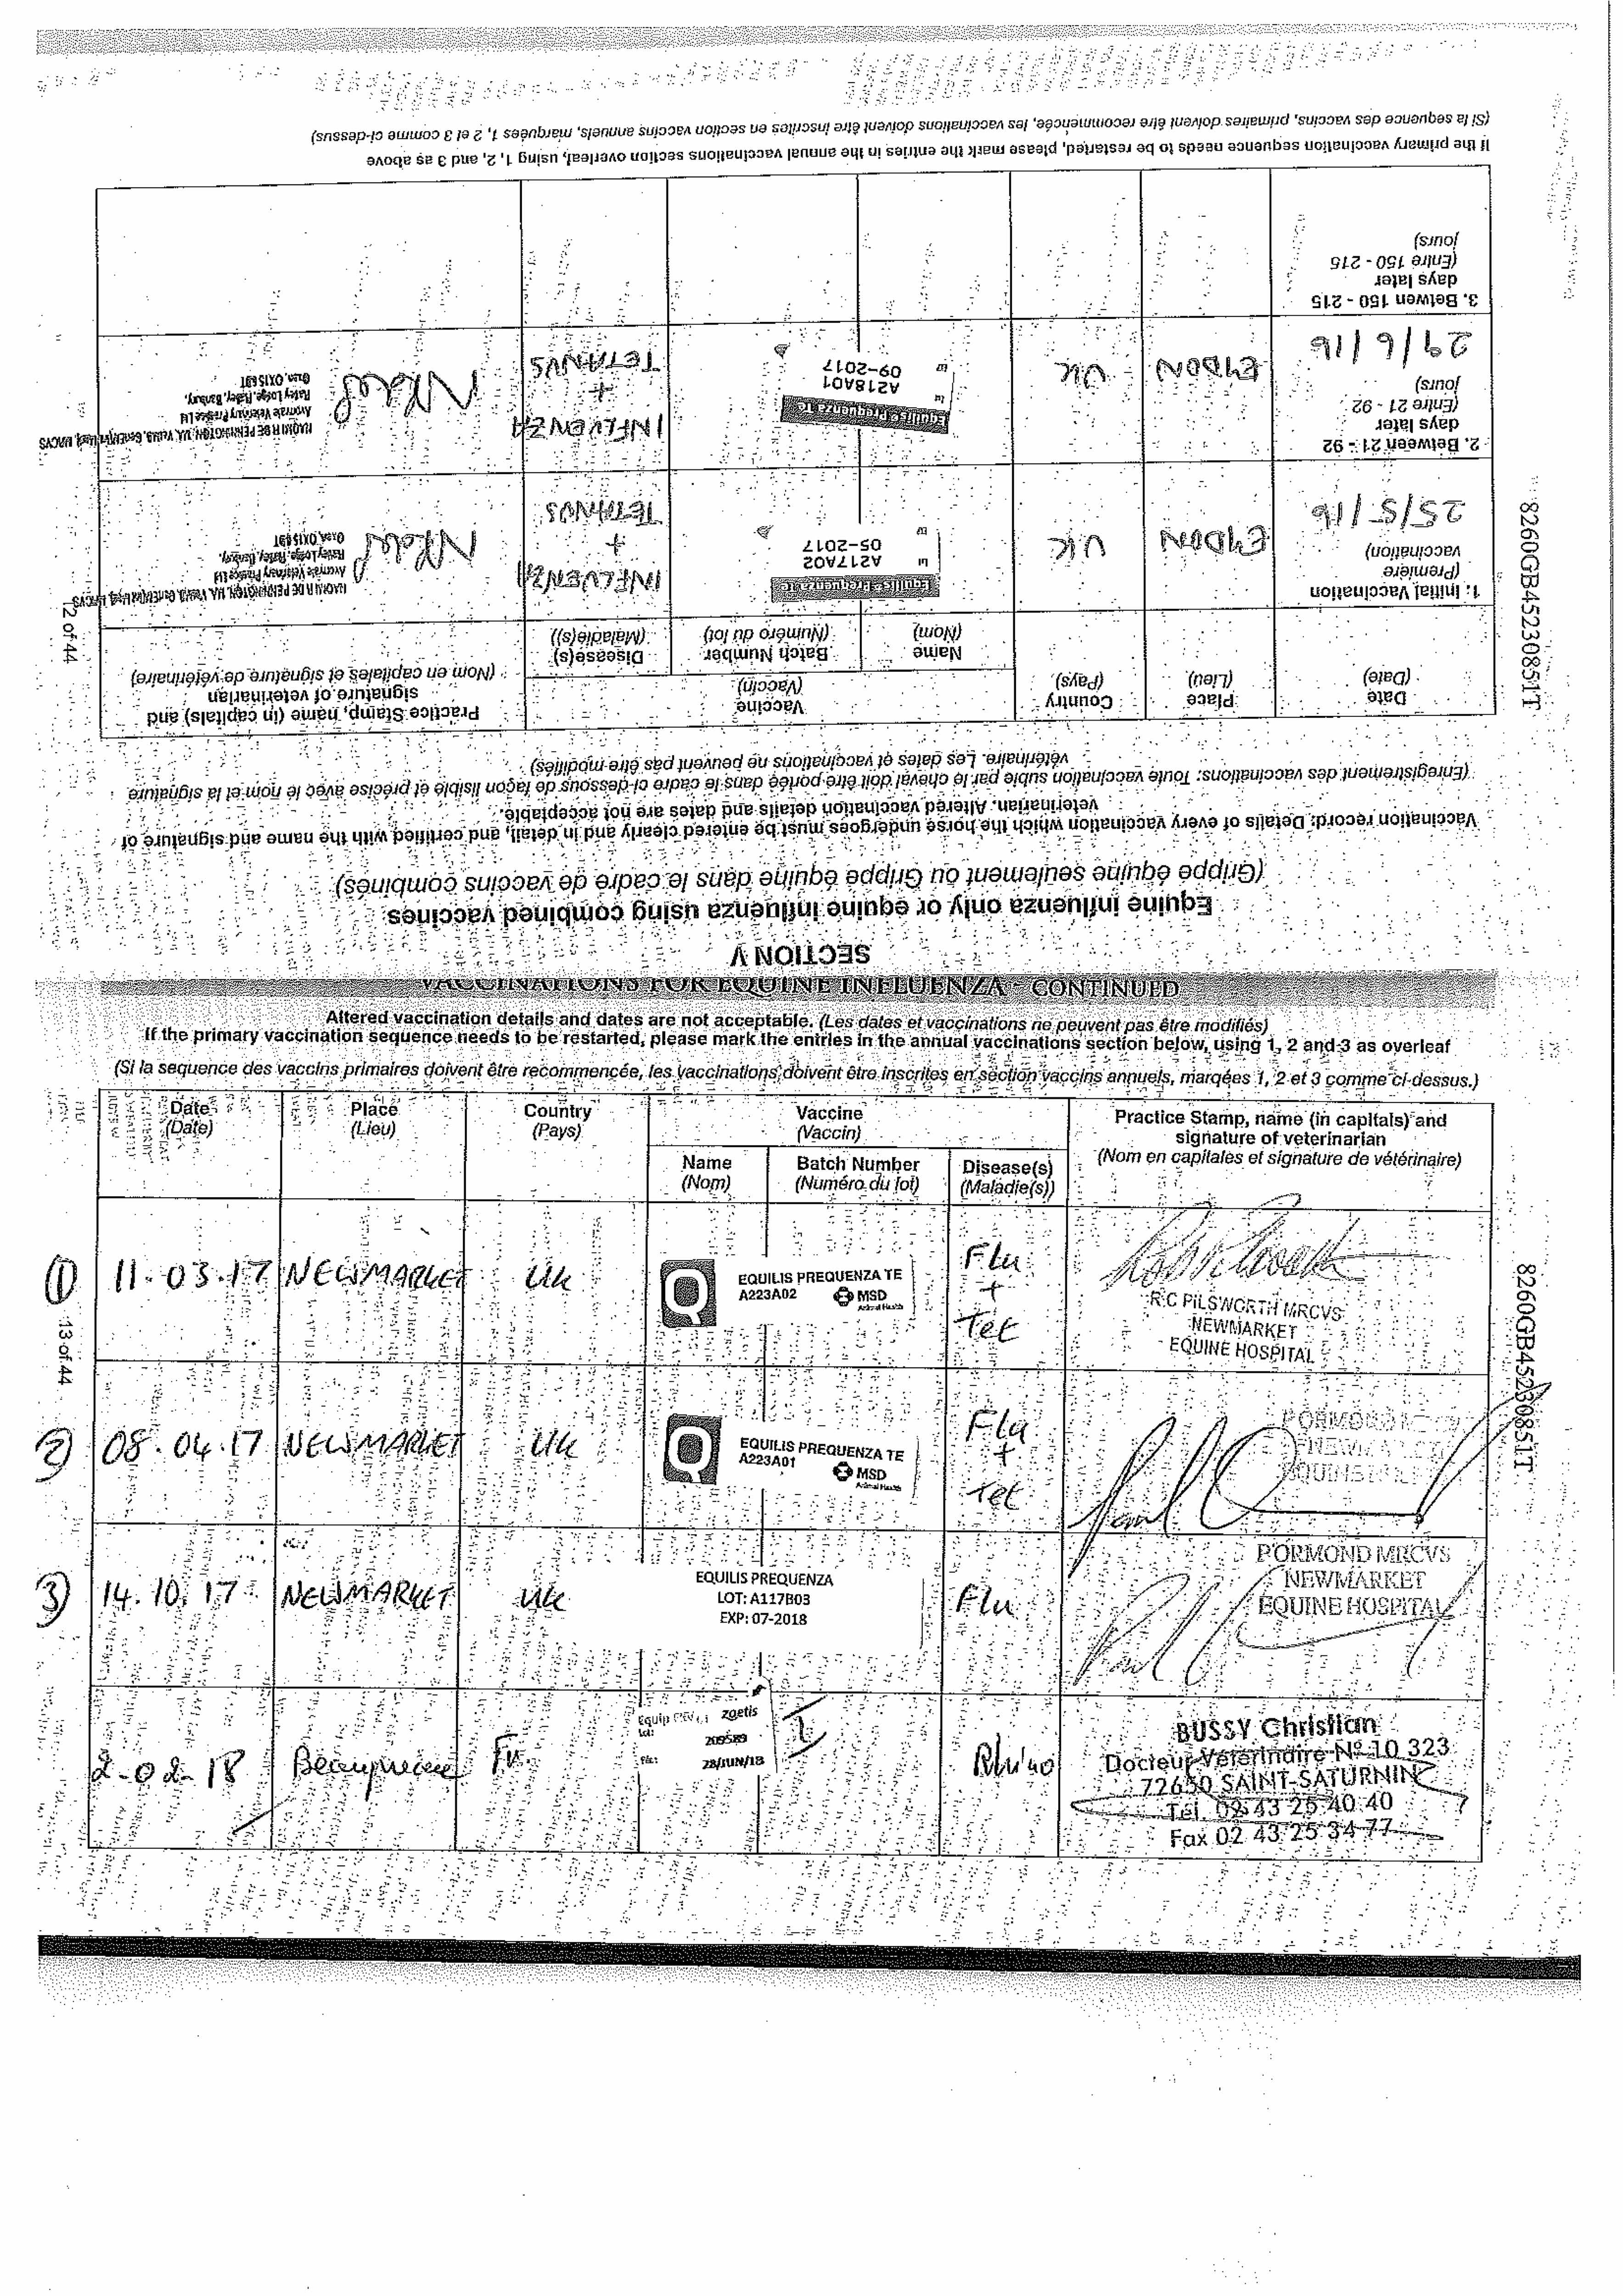 SECTION V
Equine influenza only or equine influenza using combined vaccines
(Grippe équine seulement ou Grippe équine dans le cadre de vaccins combinés)
Vaccination record: Details of every vaccination which the horse undergoes must be entered clearly and in detail, and certified with the name and signature of
veterinarian. Altered vaccination details and dates are not acceptable.
(Enregistrement des vaccinations: Toute vaccination subie par le cheval doit être portée dans le cadre ci-dessous de façon lisible et précise avec le nom et la signature
vétérinaire. Les dates et vaccinations ne peuvent pas être modifiés)
Date
(Date)
Place
(Lieu)
Country
(Pays)
Vaccine
(Vaccin)
Name
(Nom)
Batch Number
(Numéro du lot)
Disease(s)
(Maladie(s))
Practice Stamp, name (in capitals) and
signature of veterinarian
(Nom en capitales et signature de vétérinaire)
1: Initial Vaccination
(Première
vaccination)
25/5/16
EYDON
UK
Equilis Prequenza Te
A217A02
05-2017
INFLUENZA
+
TETANUS
NAOMI R DE PENNINGTON, MA, VetMB,
Ratley Lodge, Ratley, Banbury,
Oxon, OX15
2. Between 21 - 92
days later
(Entre 21 - 92
jours)
29/6/16
EYDON
UK
Equilis Prequenza Te
A218A01
09-2017
INFLUENZA
+
TETANUS
NAOMI R DE PENNINGTON, MA, VetMB,
Ratley Lodge, Ratley, Banbury,
Oxon, OX15
3. Between 150 - 215
days later
(Entre 150 - 215
jours)
If the primary vaccination sequence needs to be restarted, please mark the entries in the annual vaccinations section overleaf, using 1, 2, and 3 as above
(Si la sequence des vaccins, primaires doivent être recommencée, les vaccinations doivent être inscrites en section vaccins annuels, marquées 1, 2 et 3 comme ci-dessus)
12 of 44
8260GB45230851T
VACCINATIONS FOR EQUINE INFLUENZA - CONTINUED
Altered vaccination details and dates are not acceptable. (Les dates et vaccinations ne peuvent pas être modifiés)
If the primary vaccination sequence needs to be restarted, please mark the entries in the annual vaccinations section below, using 1, 2 and 3 as overleaf
(Si la sequence des vaccins primaires doivent être recommencée, les vaccinations doivent être inscrites en section vaccins annuels, marqées 1, 2 et 3 comme ci-dessus.)
Date
(Date)
Place
(Lieu)
Country
(Pays)
Vaccine
(Vaccin)
Name
(Nom)
Batch Number
(Numéro du lot)
Disease(s)
(Maladie(s))
Practice Stamp, name (in capitals) and
signature of veterinarian
(Nom en capitales et signature de vétérinaire)
1) 11.03.17 NEWMARKET UK
EQUILIS PREQUENZA TE
A223A02 MSD
Animal Health
Flu
+
Tet
R C PILSWORTH MRCVS
NEWMARKET
EQUINE HOSPITAL
2) 08.04.17 NEWMARKET UK
EQUILIS PREQUENZA TE
A223A01 MSD
Animal Health
Flu
+
Tet
P ORMOND
NEWMARKET
EQUINE
3) 14.10.17 NEWMARKET UK
EQUILIS PREQUENZA
LOT: A117B03
EXP: 07-2018
Flu
P ORMOND MRCVS
NEWMARKET
EQUINE HOSPITAL
2-02-18 Fr
Equip zoetis
28/JUN/18
Rhino
BUSSY Christian
Docteur Vétérinaire Nº 10 323
72650 SAINT-SATURNIN
Tél. 02 43 25 40 40
Fax 02 43 25 34 77
13 of 44
8260GB45230851T